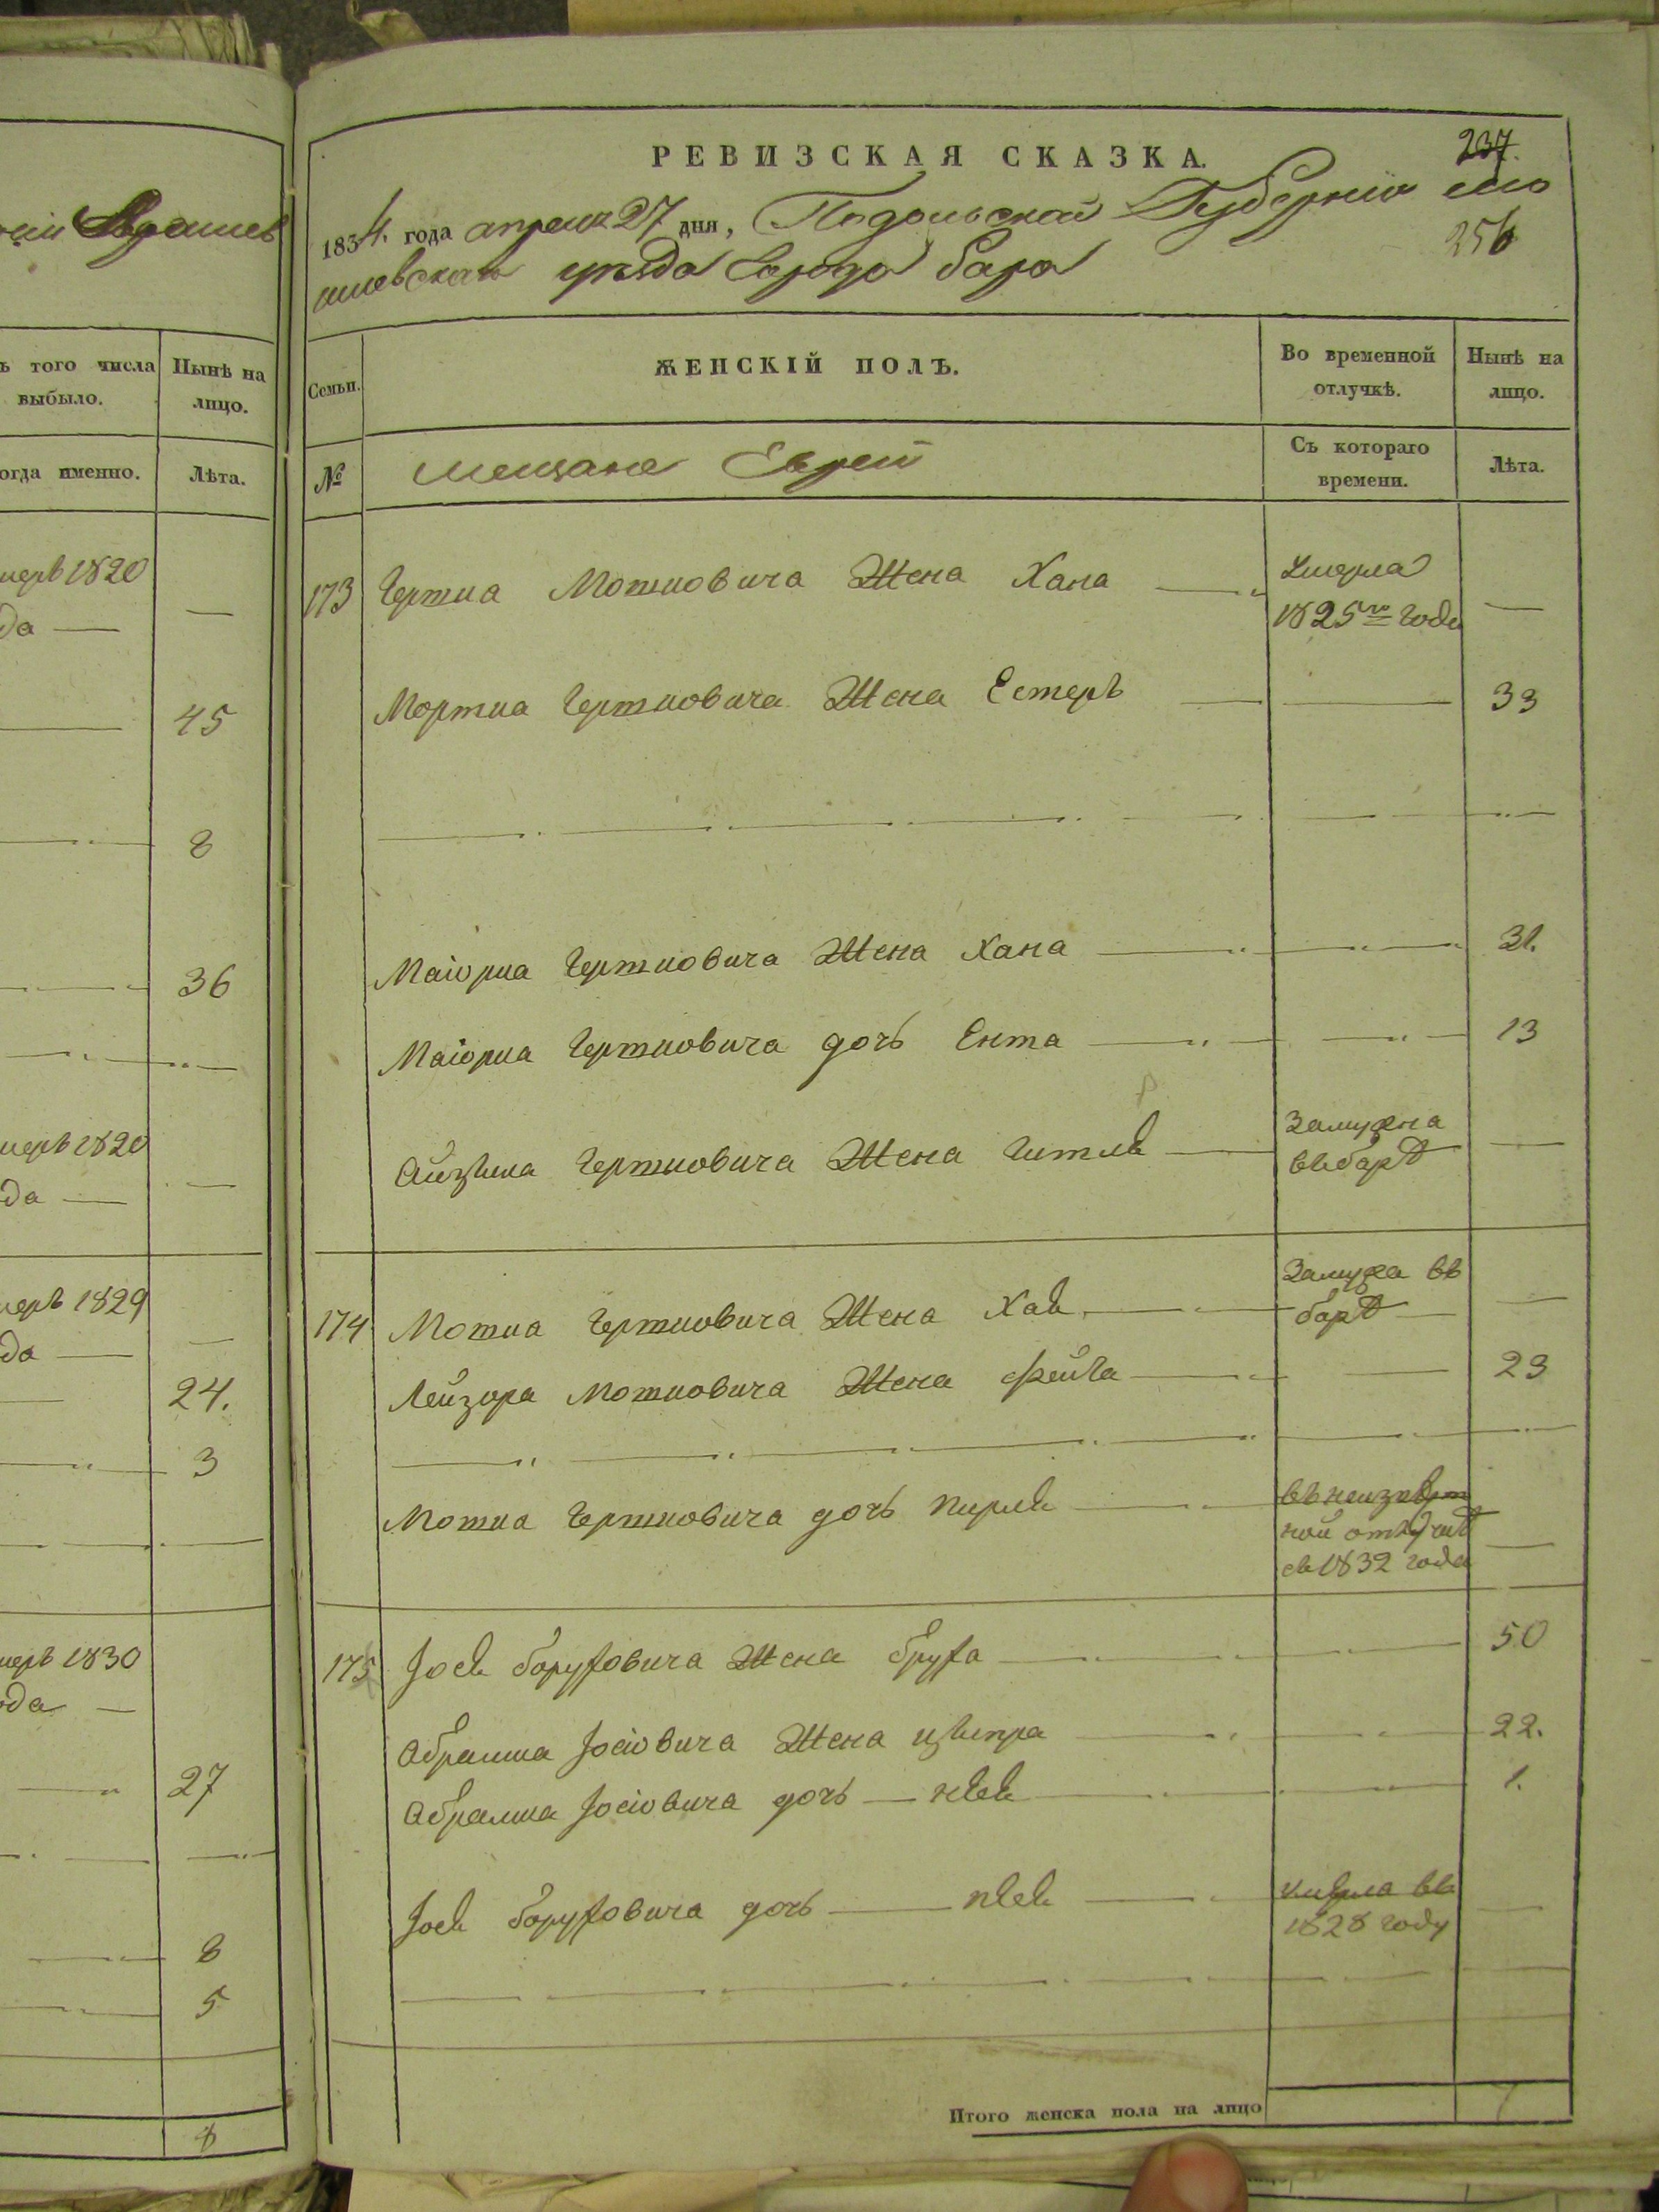 того числа
выбыло.
Нынѣ на
лицо.
огда именно.
Лѣта.
мерь 1820
да — —
45
8
36
мерь 1820
да — —
мерь 1829
да — —
24.
3
мерь 1830
ода —
27
8
5
8
РЕВИЗСКАЯ СКАЗКА.
237.
1834. года апреля 27 дня, Подольской Губернiи
256
уезда города бара
Семьи.
ЖЕНСКІЙ ПОЛЪ.
Во временной
отлучкѣ.
Нынѣ на
лицо.
№
Мещане Евреи
Съ котораго
времени.
Лѣта.
173 Гершка Мошковича Жена Хана — Умерла
1825го года —
Мошка Гершковича Жена Естерь — — 33
Гершковича Жена Хана — — 31.
Гершковича дочь Ента — — 13
Гершковича Жена Гитля — Замужна
въ барѣ —
174 Мошка Гершковича Жена Хая — Замужа въ
барѣ — —
Лейзора Мошковича Жена Фейга — — 23
Мошка Гершковича дочь Пирля — въ неизвѣст
ной отлучкѣ
съ 1832 года —
175 Іося боруховича Жена бруха — — 50
Абрамка Іосіовича Жена ципра — — 22.
Абрамка Іосіовича дочь — — 1.
Іося боруховича дочь — — умерла въ
1828 году —
Итого женска пола на лицо 7